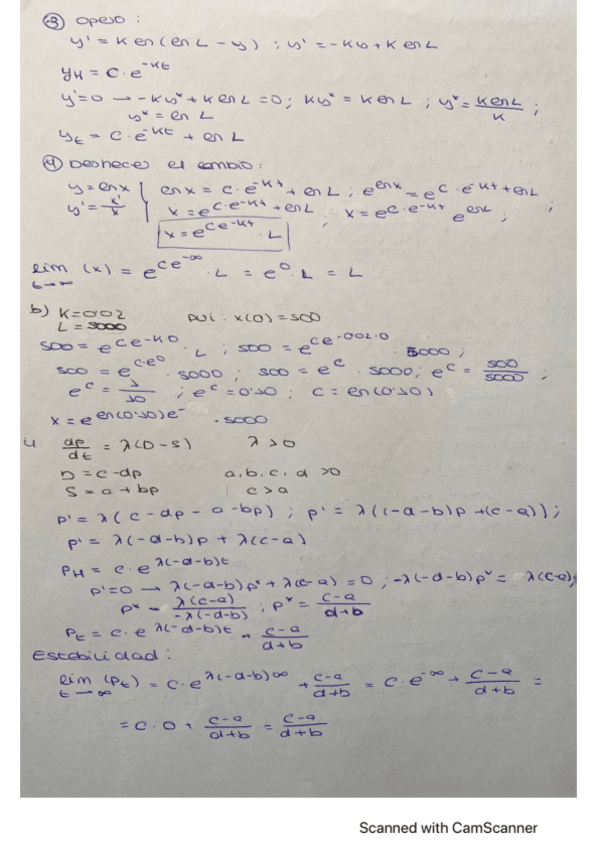 ③ Opero :
y' = K en (en L - y) ; y' = -Ky + K en L
y_H = C · e^{-Kt}
y'=0 → -Ky* + K en L = 0 ; Ky* = K en L ; y* = \frac{K en L}{K} ;
y* = en L
y_t = C · e^{-Kt} + en L
④ Deshacer el cambio :
y = en x | en x = C · e^{-Kt} + en L ; e^{en x} = e^{C · e^{-Kt} + en L} ;
y' = \frac{x'}{x} | x = e^{C · e^{-Kt} + en L} ; x = e^{C · e^{-Kt}} e^{en L} ;
x = e^{C e^{-Kt}} · L
\lim_{t→∞} (x) = e^{C e^{-∞}} · L = e^0 · L = L
b) K = 0'02 PVI : x(0) = 500
L = 5000
500 = e^{C e^{-K·0}} · L ; 500 = e^{C e^{-0'02·0}} · 5000 ;
500 = e^{C·e^0} · 5000 ; 500 = e^C · 5000 ; e^C = \frac{500}{5000} ;
e^C = \frac{1}{10} ; e^C = 0'10 ; C = en (0'10)
x = e^{en (0'10) e^-} · 5000
4 \frac{dp}{dt} = λ(D - S) λ > 0
D = c - dp a, b, c, d > 0
S = a + bp c > a
p' = λ(c - dp - a - bp) ; p' = λ((-d-b)p + (c-a)) ;
p' = λ(-d-b)p + λ(c-a)
p_H = C · e^{λ(-d-b)t}
p'=0 → λ(-d-b)p* + λ(c-a) = 0 ; -λ(-d-b)p* = λ(c-a) ;
p* = \frac{λ(c-a)}{-λ(-d-b)} ; p* = \frac{c-a}{d+b}
p_t = C · e^{λ(-d-b)t} + \frac{c-a}{d+b}
Estabilidad :
\lim_{t→∞} (p_t) = C · e^{λ(-d-b)∞} + \frac{c-a}{d+b} = C · e^{-∞} + \frac{c-a}{d+b} =
= C · 0 + \frac{c-a}{d+b} = \frac{c-a}{d+b}
Scanned with CamScanner